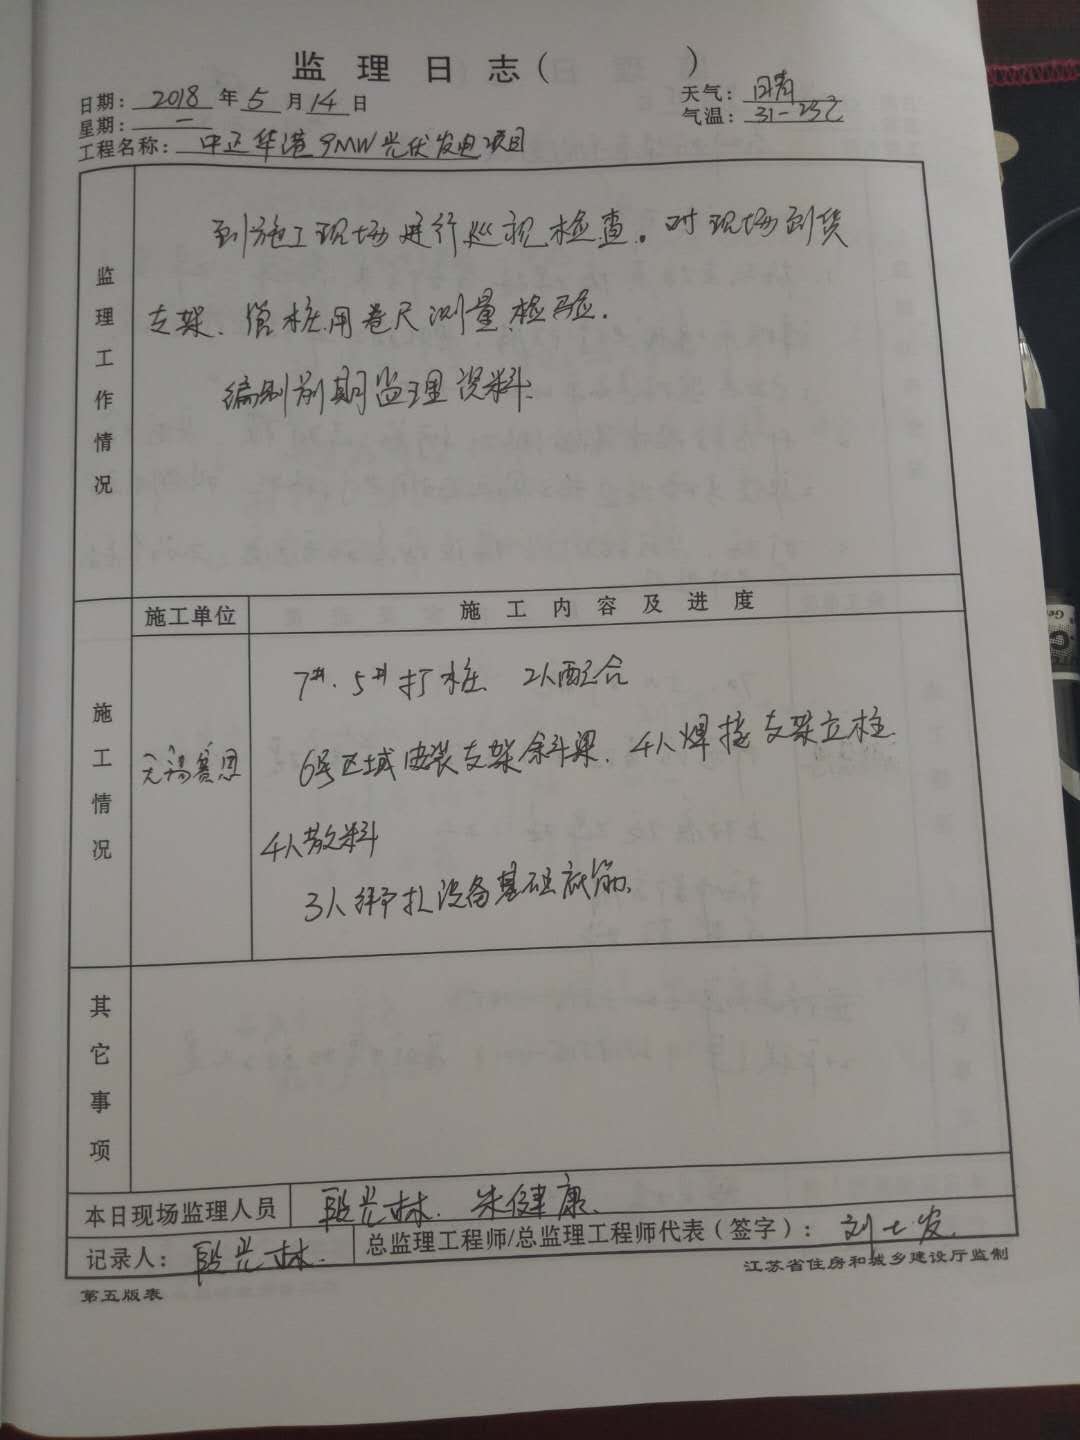 监 理 日 志（ ）
日期：2018 年 5 月 14 日
天气：日晴
星期：一
气温：31-23℃
工程名称：中正华港9MW光伏发电项目
监理工作情况
到施工现场进行巡视检查。对现场到货
支架、管桩用卷尺测量检验.
编制前期监理资料.
施工情况
施工单位
施 工 内 容 及 进 度
无锡赛恩
7#、5#打桩 2人配合
6号区域安装支架斜梁、4人焊接支架立柱
4人散料
3人绑扎设备基础底筋.
其它事项
本日现场监理人员
段光林. 朱健康.
记录人：段光林.
总监理工程师/总监理工程师代表（签字）：
江苏省住房和城乡建设厅监制
第五版表